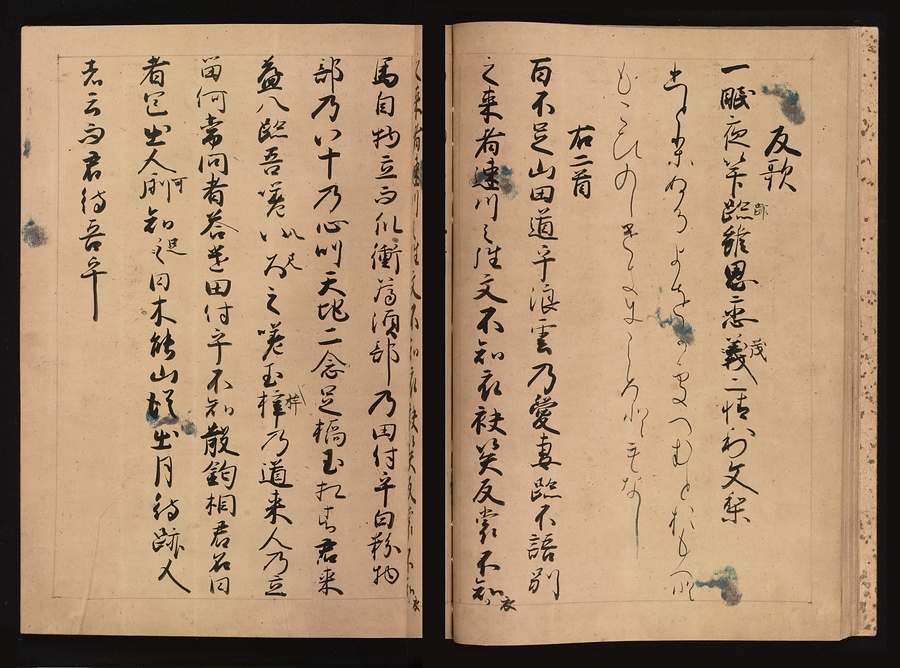 反歌
一眠夜笇跡雖思恋茂二情利文梨
ひとりぬるよをかそへむとおもへと
もこひのしけきにこゝろともなし
右二首
百不足山田道乎浪雲乃愛妻跡不語別
之来者速川之徃文不知衣袂笶反裳不知
馬自物立而爪衝為須部乃田付乎白粉物
部乃八十乃心叫天地二念足橋玉相者君来
益八跡吾嗟八尺之嗟玉桙乃道来人乃立
留何常問者答遣田付乎不知散釣相君名曰
者色出人可知足日木能山従出月待跡人
者云而君待吾乎